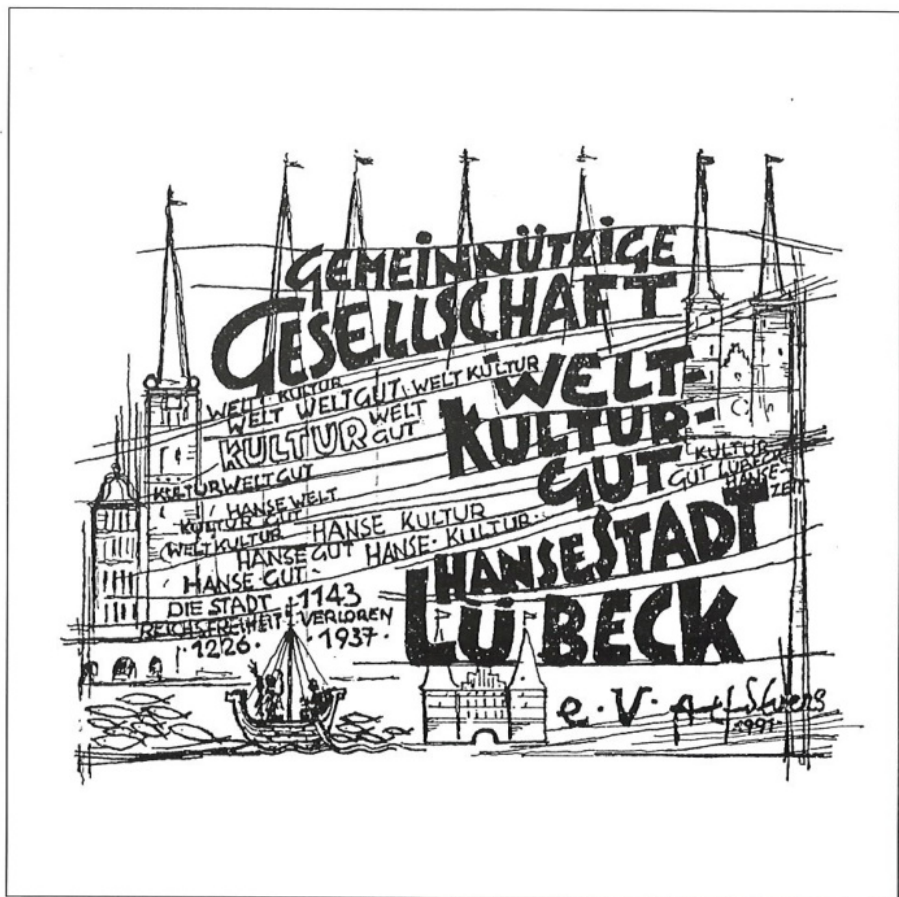 GEMEINNÜTZIGE
GESELLSCHAFT
WELT-
KULTUR-
GUT
HANSESTADT
LÜBECK
e.V.
1991
WELT · KULTUR
WELT WELTGUT · WELT KULTUR
KULTUR WELT
GUT
KULTUR WELT GUT
HANSE WELT
KULTUR GUT
WELT KULTUR HANSE KULTUR
HANSE GUT HANSE · KULTUR ·
HANSE GUT ·
DIE STADT · 1143
REICHSFREIHEIT · VERLOREN
· 1226 · · 1937 ·
KULTUR
GUT
HANSE-
ZEIT